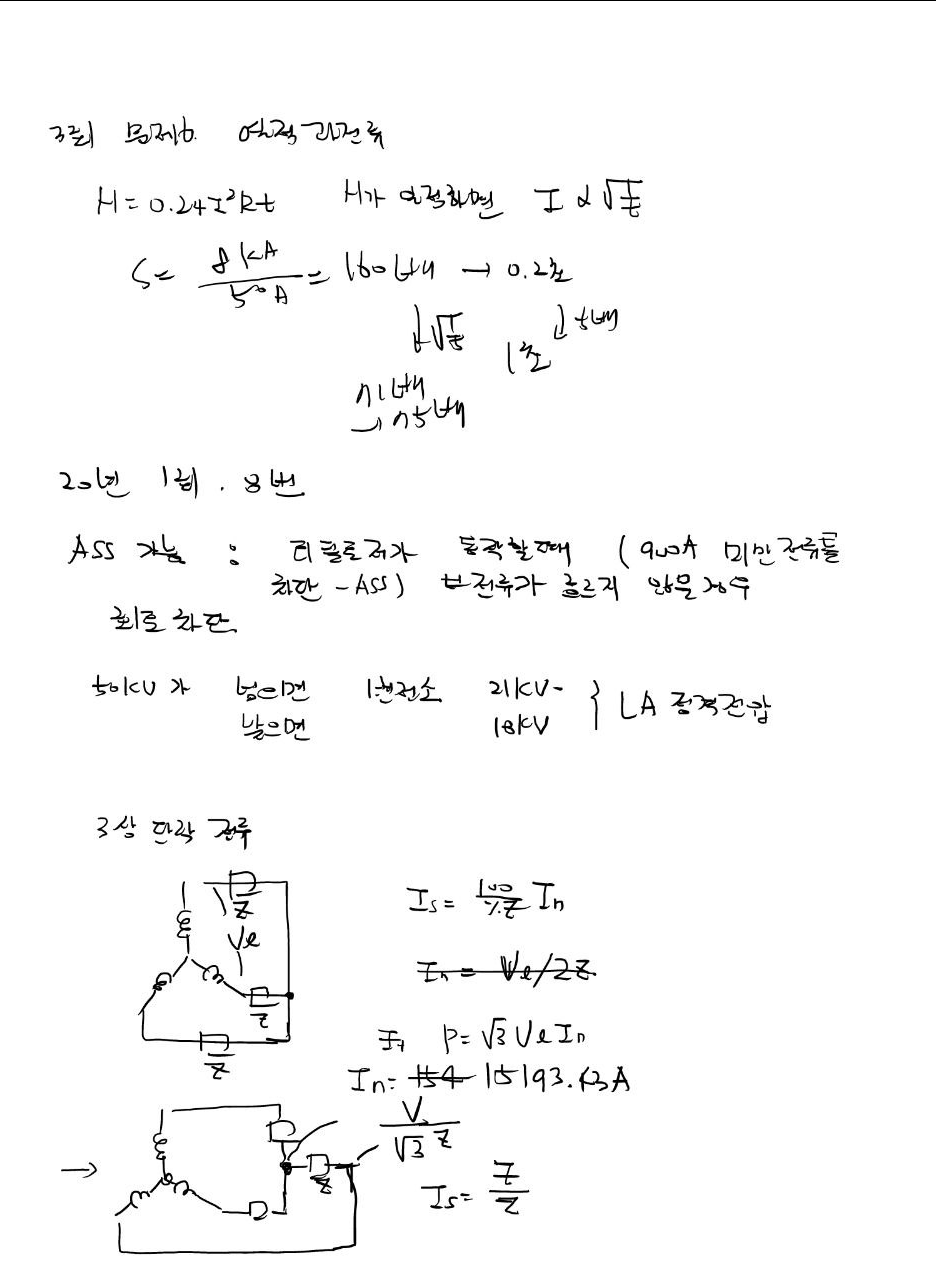 3회 문제6. 열적 과전류
H=0.24I²Rt H가 일정하면 I ∝ √(1/t)
S= 8kA/50A = 160배 → 0.2초
↓√(1/5) ↓5배
1초
71배
→ 75배
20년 1회. 8번
ASS 기능 : 리클로저가 동작할때 (900A 미만 전류를
차단 - ASS) 부전류가 흐르지 않을경우
회로 차단.
50kV가 넘으면 변전소 21kV-
낮으면 18kV } LA 정격전압
3상 단락 전류
Z
Vl
Z
Z
Is= 100/%Z In
In = Vl/2Z
P=√3 Vl In
In= 154 15193.43A
→ Z V/√3 Z
Is=